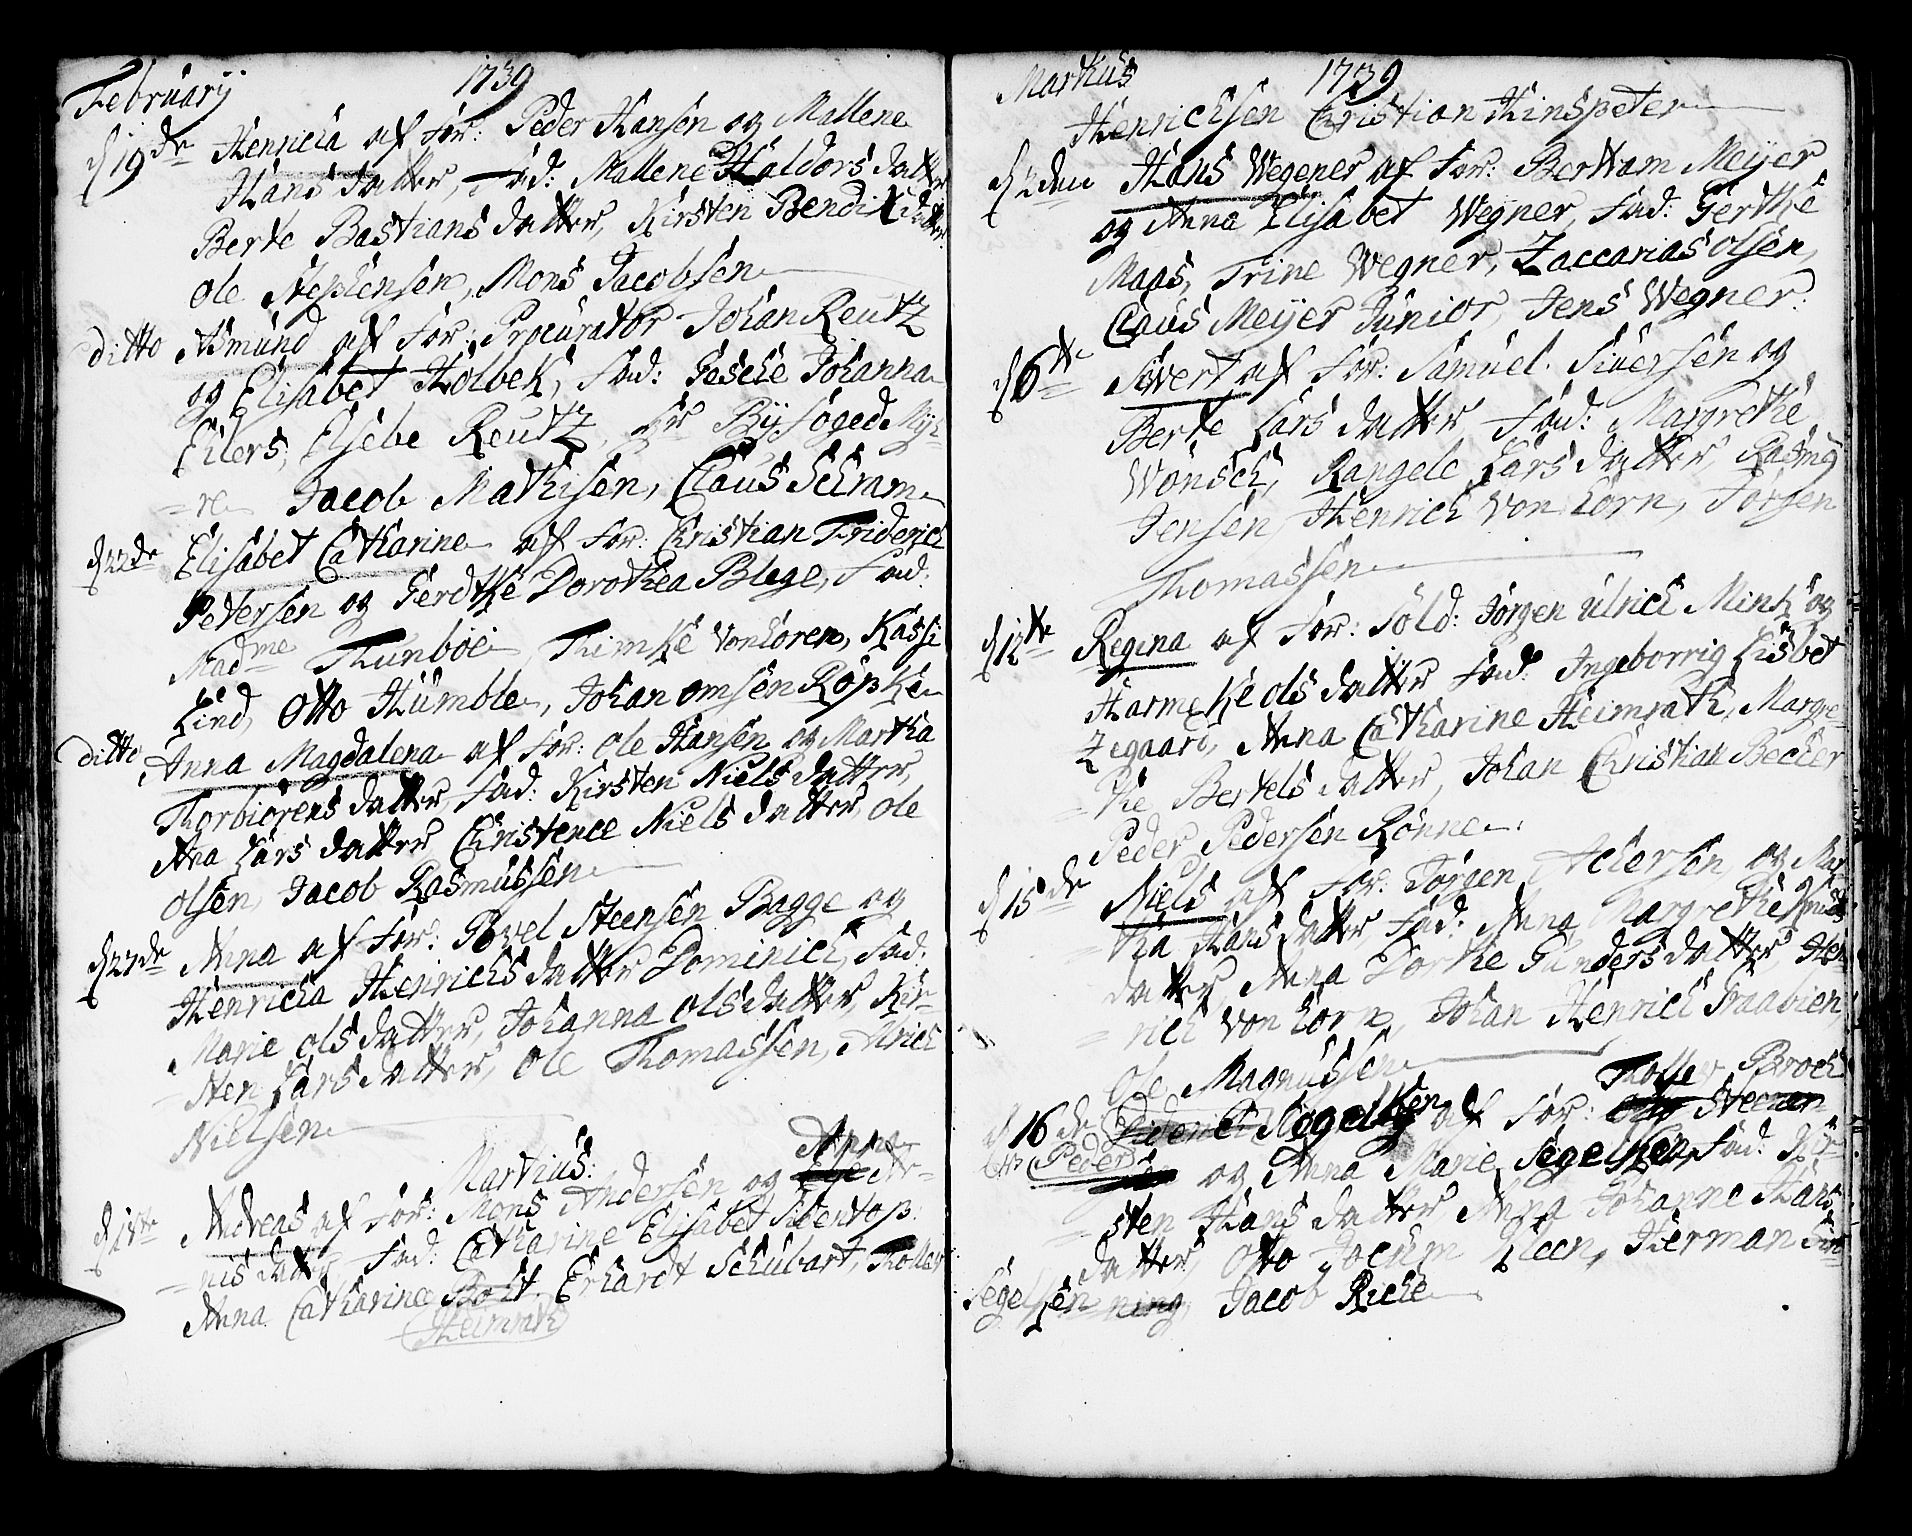 February 1739
d 19de Henricha af For: Peder Hansen og Mallene
Hans datter, Fad: Mallene Haldors datter
Berte Bastians datter, Kirsten Bendixdatter
Ole Stephensen, Mons Jacobsen
ditto Asmund af For: Procurator Johan Reutz
og Elisabet Holbek, Fad: Gesche Johanna
Eilers, Elsebe Reutz, Hr Byfoged Myh-
=re Jacob Mathisen, Claus Schram
d 22de Elisabet Catharine af For: Christian Friderich
Petersen og Gerdtke Dorothea Blege, Fad:
Madme Thunboe Thimke von Loren, Kassi
Lind, Otto Humble, Johan Omsen Röpke
ditto Anna Magdalena af For: Ole Hansen og Martha
Thorbiörens datter, Fad: Kirsten Niels datter,
Ana Lars datter Christence Niels datter, Ole
Olsen, Jacob Rasmussen
d 27de Anna af For: Povel Steensen Bagge og
Henricha Henrichs datter Dominich, Fad:
Marie Ols datter, Johanna Ols datter, Kir-
=sten Lars datter, Ole Thomassen, Alrich
Nielsen
Martius:
Anna
d 1ste Andreas af For: Mons Andersen og Ar-
=nis datter Fad: Catharine Elisabet Sidentop
Anna Catharine Bohl. Erhardt Schubart, Tollev
Heimrath
Martius 1739
Henrichsen Christian Hinspeter
d 2den Hans Wegener af For: Bertram Meyer
og Anna Elisabet Wegner, Fad: Gerthe
Maas, Trine Wegner, Zaccarias Olsen,
Claus Meyer Junior, Jens Wegner.
d 6te Sivert af For: Samuel Siversen og
Berte Lars datter Fad: Margrethe
Wonsch, Rangele Lars datter, Rasmus
Jensen, Henrich von Lorn, Jorgen
Thomassen
d 12te Regina af For: Sold: Jörgen Ulrich Mink og
Harmeke Ols datter Fad: Ingeborrig Lisbet
Zegaard, Anna Catharine Heimrath, Margre-
=the Bertels datter, Johan Christian Becher
Peder Pedersen Rönne.
d 15de Niels af For: Jörgen Achersen og Mar-
=tha Hans datter Fad: Anna Margrethe Knuds
datter, Anna Dorthe Gunders datter, Hen-
=rich von Lorn, Johan Henrich Graabien,
Ole Magnussen
Tolle Broch
d 16de Diderich Segelken af For: Steenen
Peder og Anna Marie Segelken, Fad: Kir-
=sten Hans datter Anna Johanne Hans
datter, Otto Jochim Kleen, Herman
Segelken =ning, Jacob Riche